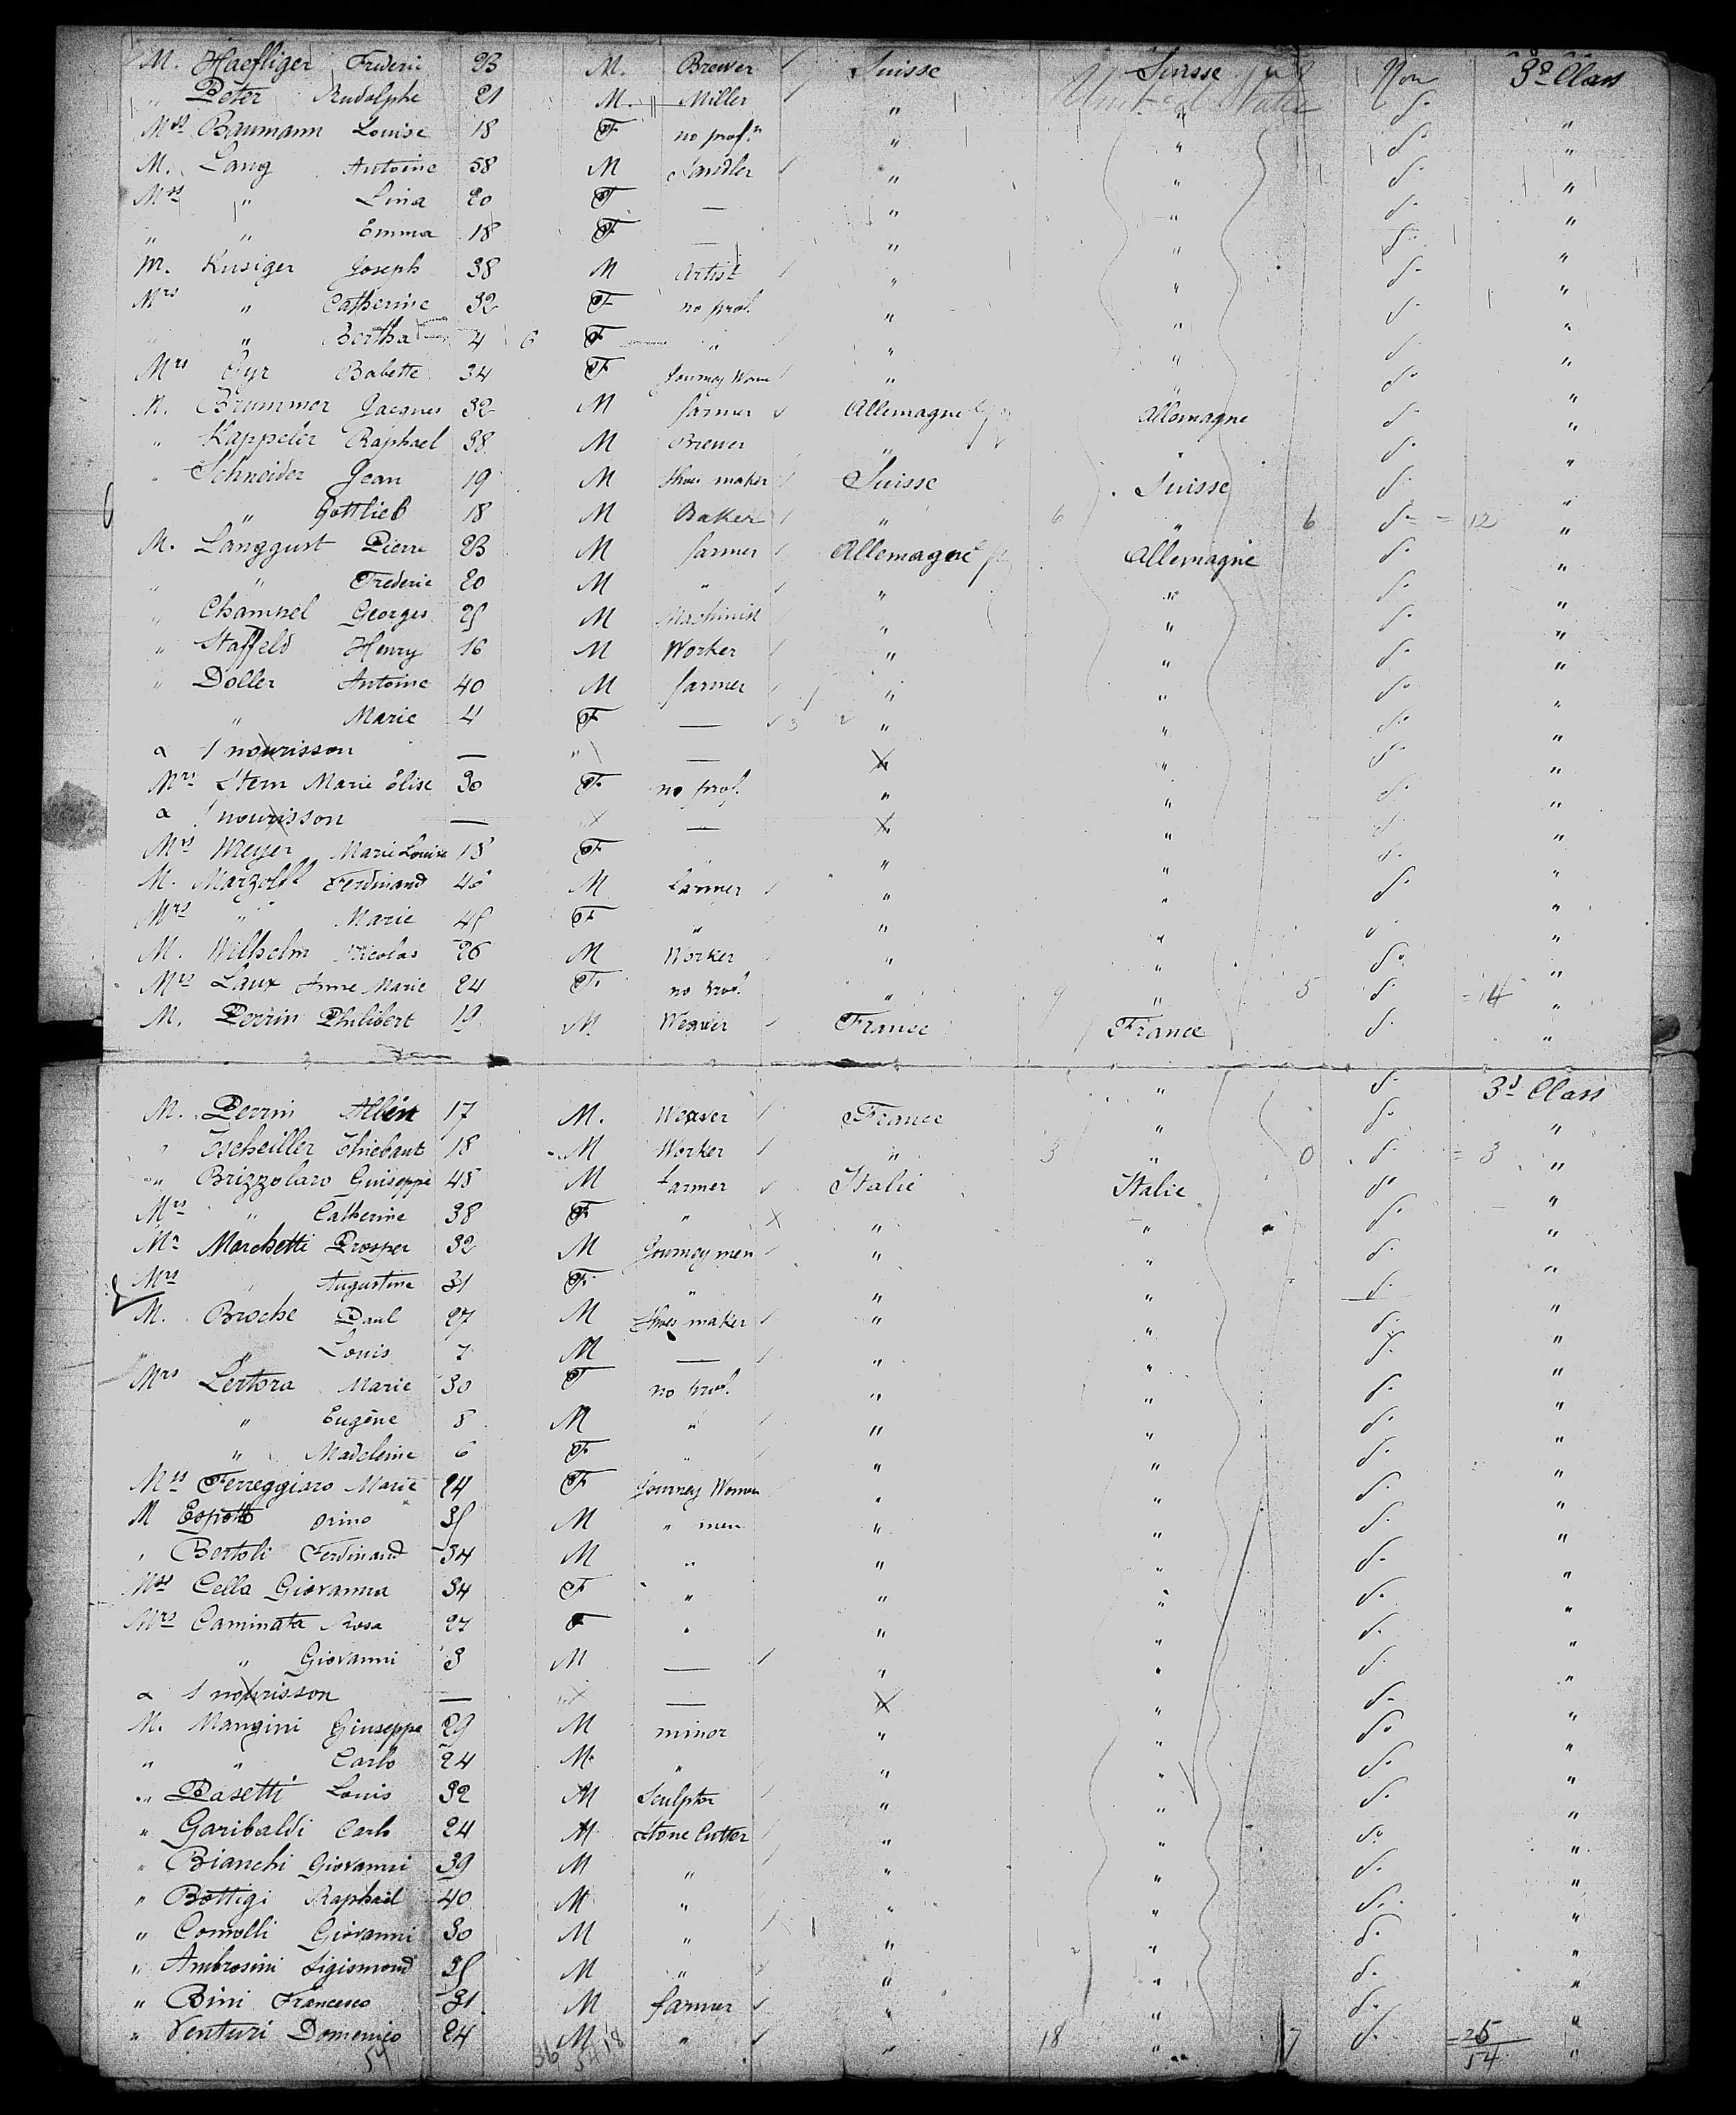 M. Haefliger Frederic 23 M. Brewer Suisse Suisse Non 3d Class
" Peter Rudolphe 21 M. Miller " United States " d° "
Mrs Baumann Louise 18 F no profn " " d° "
M. Lang Antoine 58 M " " d° "
Mrs " Lina 20 F — " " d° "
" " Emma 18 F — " " d° "
M. Kusiger Joseph 38 M Artist " " d° "
Mrs " Catherine 32 F no prof. " " d° "
" " Bertha 4 6 F " " " d° "
Mrs Gyr Babette 34 F Journey Wom " " d° "
M. Brummer Jacques 32 M farmer Allemagne Allemagne d° "
" Kappeler Raphael 38 M Brewer " " d° "
" Schneider Jean 19 M Shoes maker Suisse Suisse d° "
" Gottlieb 18 M Baker " 6 " 6 d° = 12 "
M. Langgust Pierre 23 M farmer Allemagne Allemagne d° "
" " Frederic 20 M " " " d° "
" Champel Georges 25 M Machinist " " d° "
" Staffeld Henry 16 M Worker " " d° "
" Doller Antoine 40 M farmer " " d° "
" Marie 4 F — " " d° "
& 1 nourisson — " — " " d° "
Mrs Stern Marie Elise 30 F no prof. " " d° "
& 1 nourisson — — " " d° "
Mrs Meyer Marie Louise 18 F " " " d° "
M. Marzolff Ferdinand 46 M farmer " " d° "
Mrs " Marie 45 F " " " " "
M. Wilhelm Nicolas 26 M Worker " " d° "
Mrs Laux Anne Marie 24 F. no prof. " 9 " 5 d° = 14 "
M. Perrin Philibert 19 M Weaver France France d° "
M. Perrin Albin 17 M. Weaver France " d° 3d Class
" Tscheiller Thiebaut 18 M Worker " " d° "
" Brizzolaro Guiseppe 45 M farmer Italie 3 " 0 d° = 3 "
Mrs " Catherine 38 F " " Italie d° "
Mr Marchetti Prosper 32 M Journey men " " d° "
Mrs " Augustine 31 F " " " d° "
M. Broche Paul 27 M Shoes maker " " d° "
" " Louis 7 M — " " d° "
Mrs Lertora Marie 30 F no prof. " " d° "
" Eugène 8 M " " " d° "
" Madeleine 6 F " " " d° "
Mrs Ferreggiaro Marie 24 F Journey Women " " d° "
M orino 35 M " men " " d° "
" Bertoli Ferdinand 34 M " " " d° "
Mrs Cella Giovanna 34 F " " " d° "
Mrs Caminata Rosa 27 F " " " d° "
" Giovanni 3 M — " " d° "
& 1 nourisson — — " " d° "
M. Mangini Giuseppe 29 M minor " " d° "
" " Carlo 24 M. " " " d° "
" Pasetti Louis 32 M Sculptor " " d° "
" Garibaldi Carlo 24 M Stone Cutter " " d° "
" Bianchi Giovanni 39 M " " " d° "
" Bottigi Raphael 40 M " " " d° "
" Comolli Giovanni 30 M " " " d° "
" Ambrosini Sigismond 35 M " " " d° "
" Bini Francesco 31 M farmer " " d° "
" Venturi Domenico 24 M " " 18 " 7 d° = 25 "
54 36 18 54